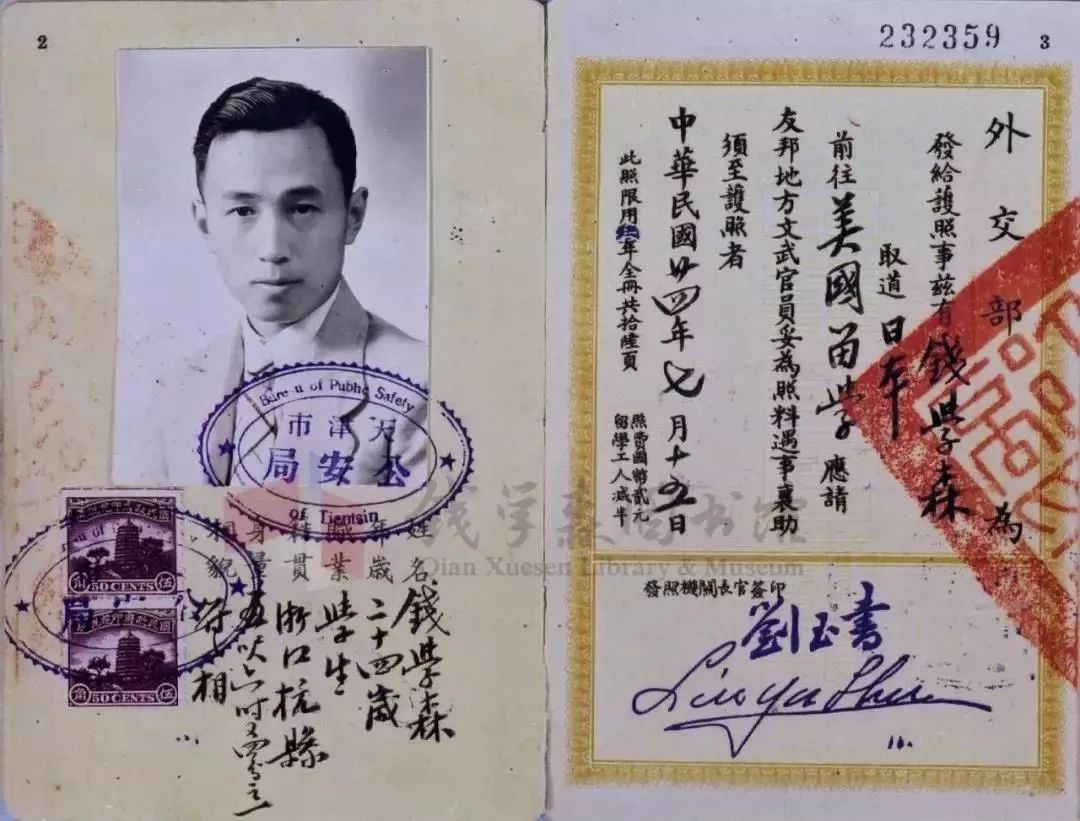 2
Bureau of Public Safety
天津市
公安局
of Tientsin
50 CENTS
50 CENTS
姓名 錢學森
年歲 二十四歲
職業 學生
籍貫 浙江杭縣
身量 五呎六吋又四分之一
相貌 符相
钱学森图书馆
Qian Xuesen Library & Museum
232359
3
外交部為
發給護照事茲有錢學森
取道日本
前往美國留學應請
友邦地方文武官員妥為照料遇事襄助
須至護照者
中華民國廿四年七月十五日
此照限用年全冊共拾陸頁
照費國幣貳元
留學工人減半
發照機關長官簽印
劉玉書
Liu Yu Shu